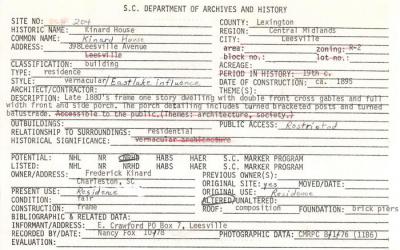 S.C. DEPARTMENT OF ARCHIVES AND HISTORY
SITE NO.: 204 COUNTY: Lexington
HISTORIC NAME: Kinard House REGION: Central Midlands
COMMON NAME: Kinard House CITY: Leesville
ADDRESS: Leesville Avenue area: zoning: R-2
Leesville block no.: lot no.:
CLASSIFICATION: building ACREAGE:
TYPE: residence PERIOD IN HISTORY: 19th c.
STYLE: vernacular/Eastlake influence DATE OF CONSTRUCTION: ca. 1895
ARCHITECT/CONTRACTOR: THEME(S):
DESCRIPTION: Late 1880's frame one story dwelling with double front cross gables and full
width front and side porch. The porch detailing includes turned bracketed posts and turned
balustrade. Accessible to the public. (Themes: architecture, society.)
OUTBUILDINGS: PUBLIC ACCESS: Restricted
RELATIONSHIP TO SURROUNDINGS: residential
HISTORICAL SIGNIFICANCE: vernacular architecture
POTENTIAL: NHL NR NRHD HABS HAER S.C. MARKER PROGRAM
LISTED: NHL NR NRHD HABS HAER S.C. MARKER PROGRAM
OWNER/ADDRESS: Frederick Kinard PREVIOUS OWNER(S):
Charleston, SC ORIGINAL SITE: yes MOVED/DATE:
PRESENT USE: Residence ORIGINAL USE: Residence
CONDITION: fair ALTERED/UNALTERED:
CONSTRUCTION: frame ROOF: composition FOUNDATION: brick piers
BIBLIOGRAPHIC & RELATED DATA:
INFORMANT/ADDRESS: E. Crawford PO Box 7, Leesville
RECORDED BY/DATE: Nancy Fox 10/78 PHOTOGRAPHIC DATA: CMRPC (1186)
EVALUATION: